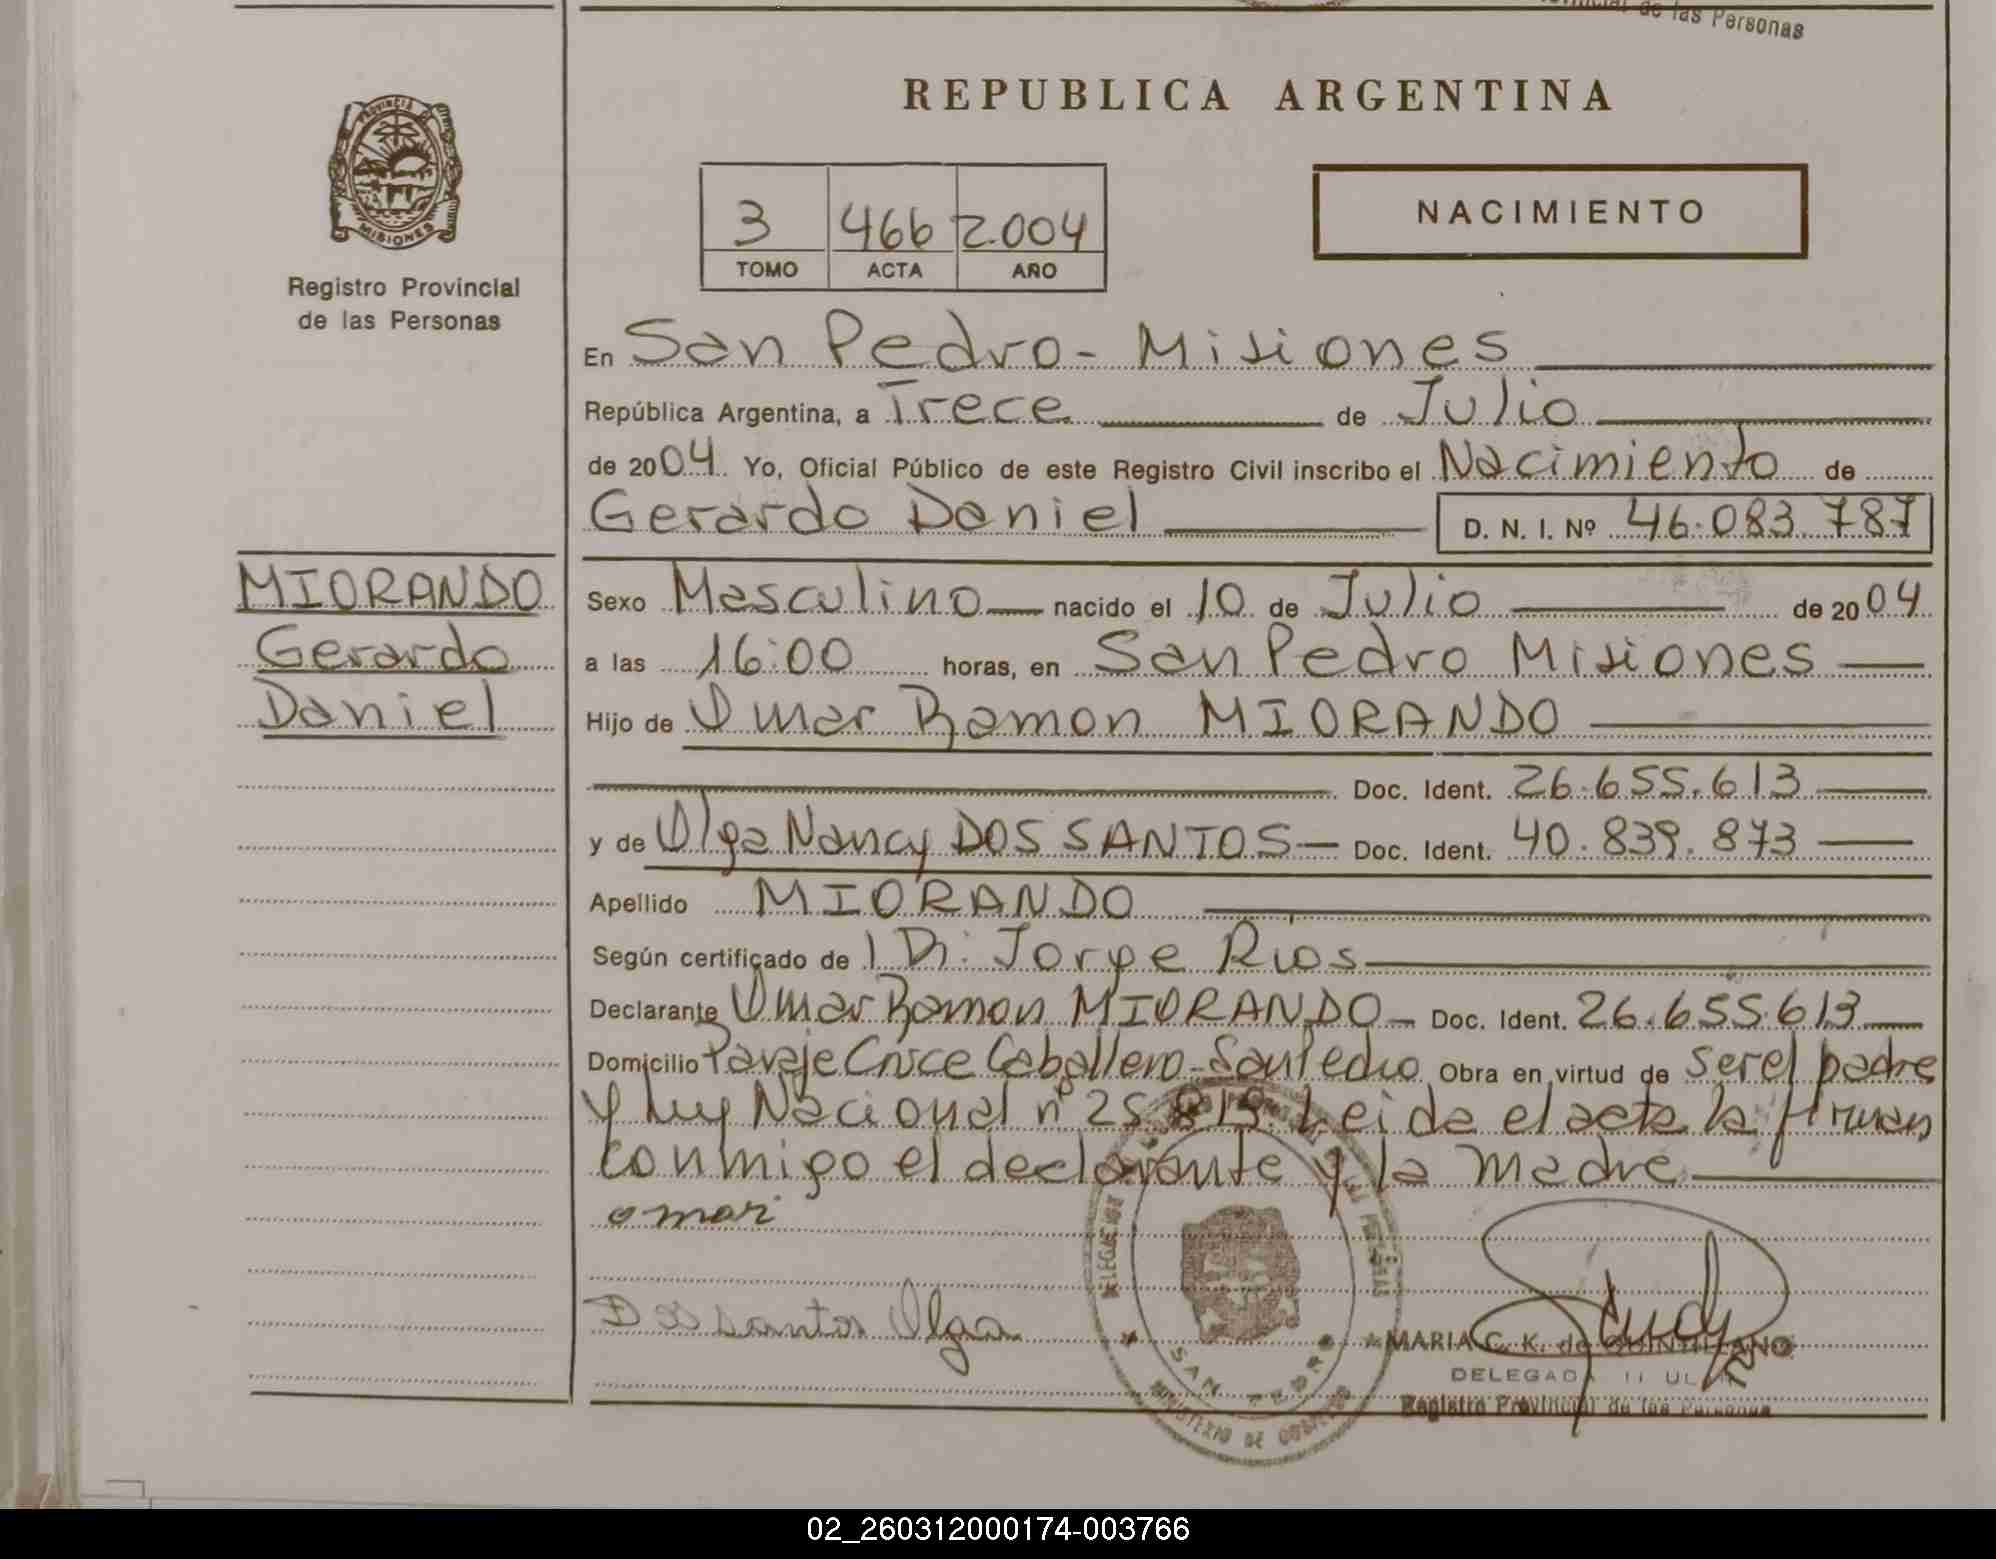 de las Personas
REPUBLICA ARGENTINA
PROVINCIA DE
MISIONES
Registro Provincial
de las Personas
3 466 2.004
TOMO ACTA AÑO
NACIMIENTO
En San Pedro - Misiones
República Argentina, a Trece de Julio
de 2004 Yo, Oficial Público de este Registro Civil inscribo el Nacimiento de
Gerardo Daniel D. N. I. Nº 46.083.787
MIORANDO
Gerardo
Daniel
Sexo Masculino nacido el 10 de Julio de 2004
a las 16:00 horas, en San Pedro Misiones
Hijo de Omar Ramon MIORANDO
Doc. Ident. 26.655.613
y de Olga Nancy DOS SANTOS Doc. Ident. 40.839.873
Apellido MIORANDO
Según certificado de Dr. Jorge Rios
Declarante Omar Ramon MIORANDO Doc. Ident. 26.655.613
Domicilio Paraje Cruce Caballero - San Pedro Obra en virtud de ser el padre
y Ley Nacional nº 25.819. Leida el acta la firman
conmigo el declarante y la madre
omar
Dos santos Olga
DELEGACION
SAN PEDRO
MINISTERIO DE GOBIERNO
MARIA C. K. de QUINTILLANO
DELEGADA TITULAR
Registro Provincial de las Personas
02_260312000174-003766